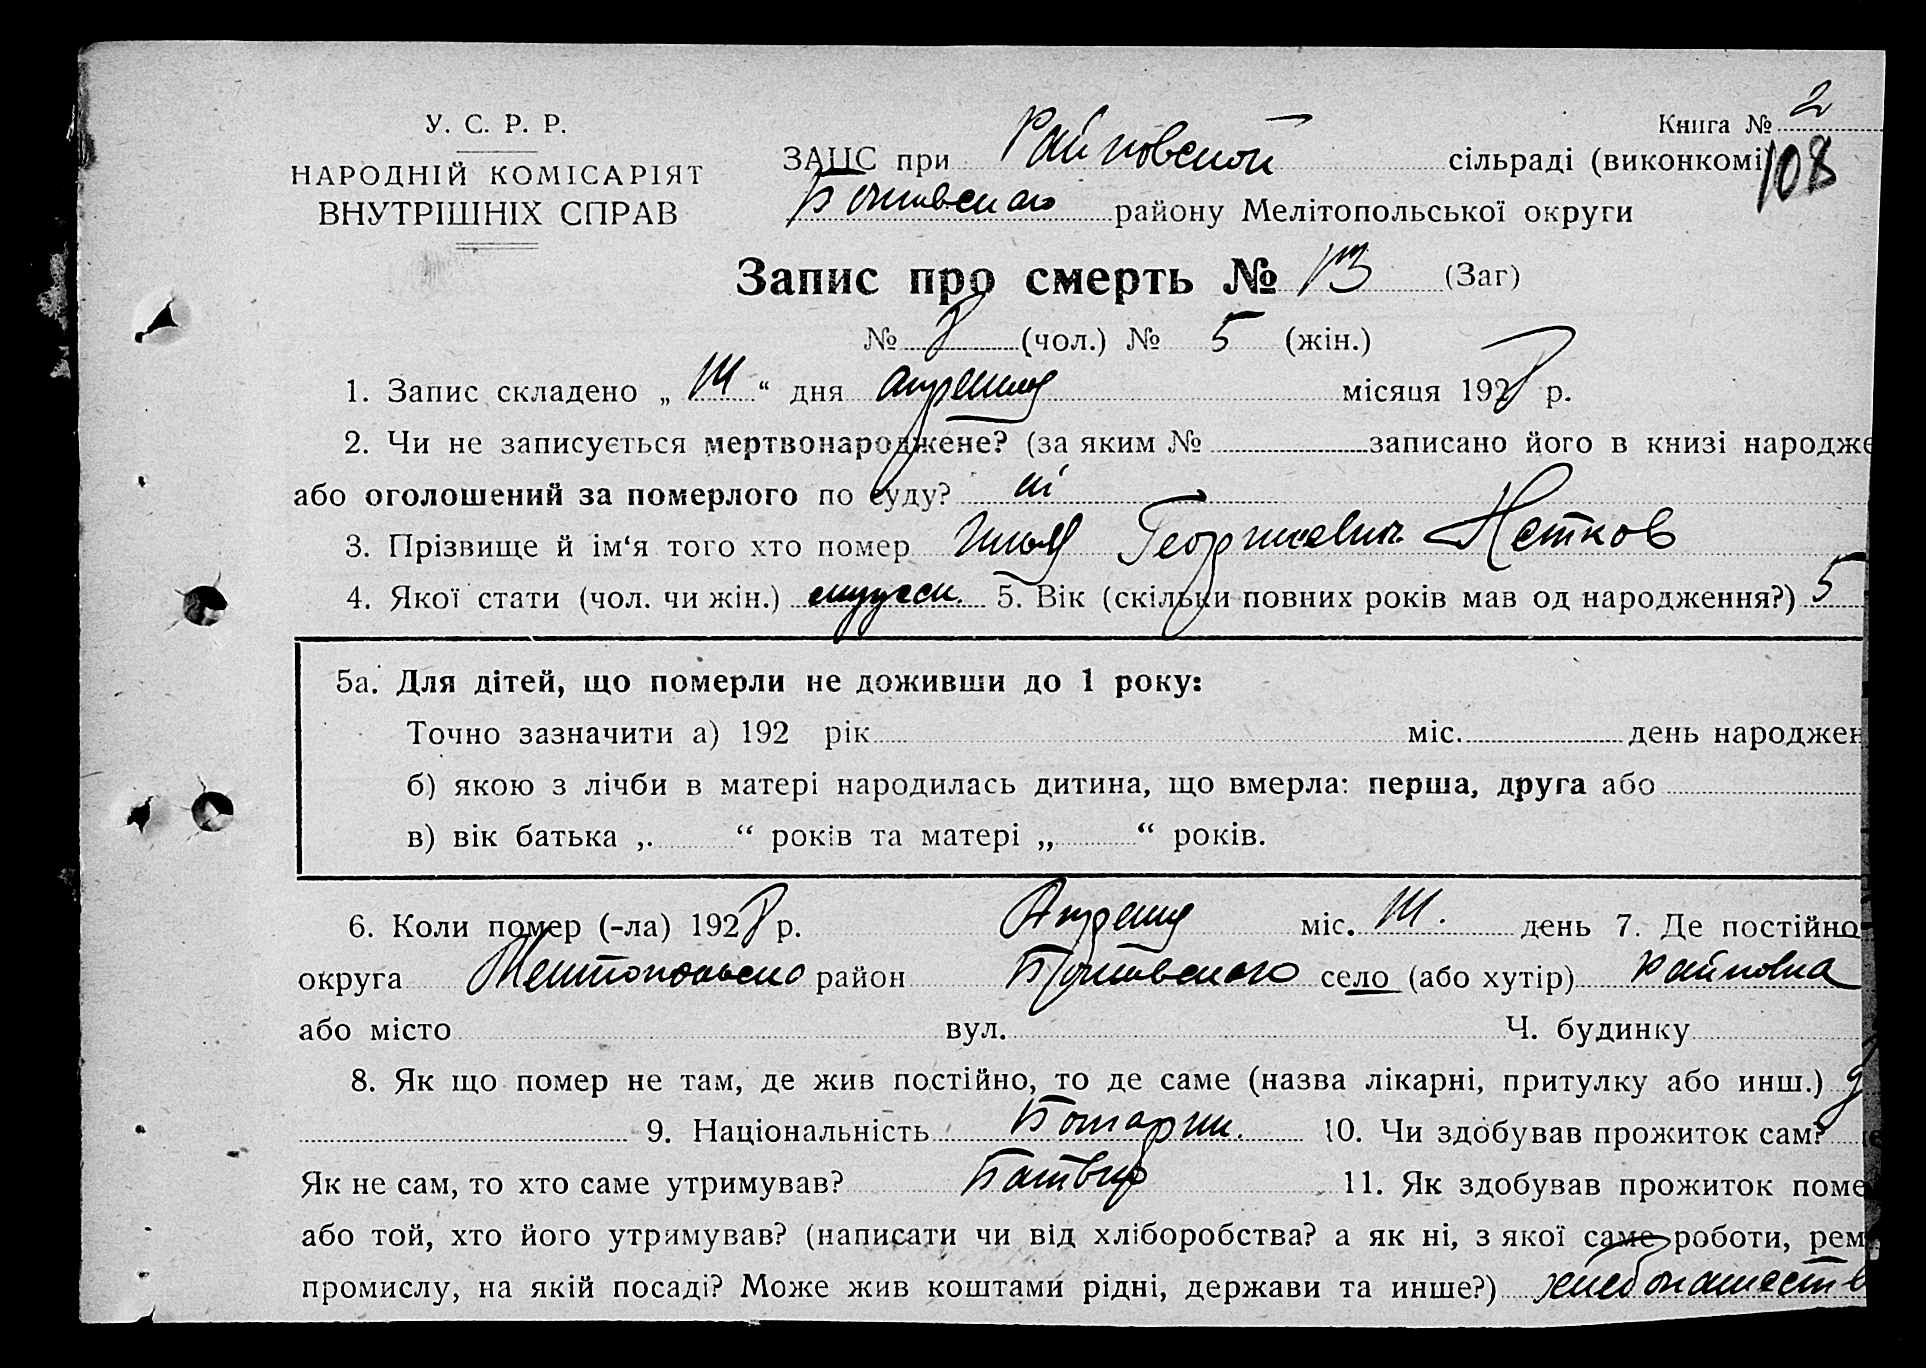 У. С. Р. Р.
НАРОДНІЙ КОМІСАРІЯТ
ВНУТРІШНІХ СПРАВ
Книга № 2
108
ЗАЦС при Райновской сільраді (виконкомі
Ботиевского району Мелітопольської округи
Запис про смерть № 13 (Заг)
№ 8 (чол.) № 5 (жін.)
1. Запис складено „ “ дня апреля місяця 1928 р.
2. Чи не записується мертвонароджене? (за яким № записано його в книзі народже
або оголошений за померлого по суду? ні
3. Прізвище й ім‘я того хто помер Илья Георгиевич Нетков
4. Якої стати (чол. чи жін.) мужск. 5. Вік (скільки повних років мав од народження?) 5
5а. Для дітей, що померли не доживши до 1 року:
Точно зазначити а) 192 рік міс. день народжен
б) якою з лічби в матері народилась дитина, що вмерла: перша, друга або
в) вік батька „ “ років та матері „ “ років.
6. Коли помер (-ла) 1928 р. Апреля міс. день 7. Де постійно
округа район Ботиевского село (або хутір) Райновка
або місто вул. Ч. будинку
8. Як що помер не там, де жив постійно, то де саме (назва лікарні, притулку або инш.)
9. Національність Болгарин. 10. Чи здобував прожиток сам?
Як не сам, то хто саме утримував? 11. Як здобував прожиток поме
або той, хто його утримував? (написати чи від хліборобства? а як ні, з якої саме роботи, рем
промислу, на якій посаді? Може жив коштами рідні, держави та инше?) хлебопашеств